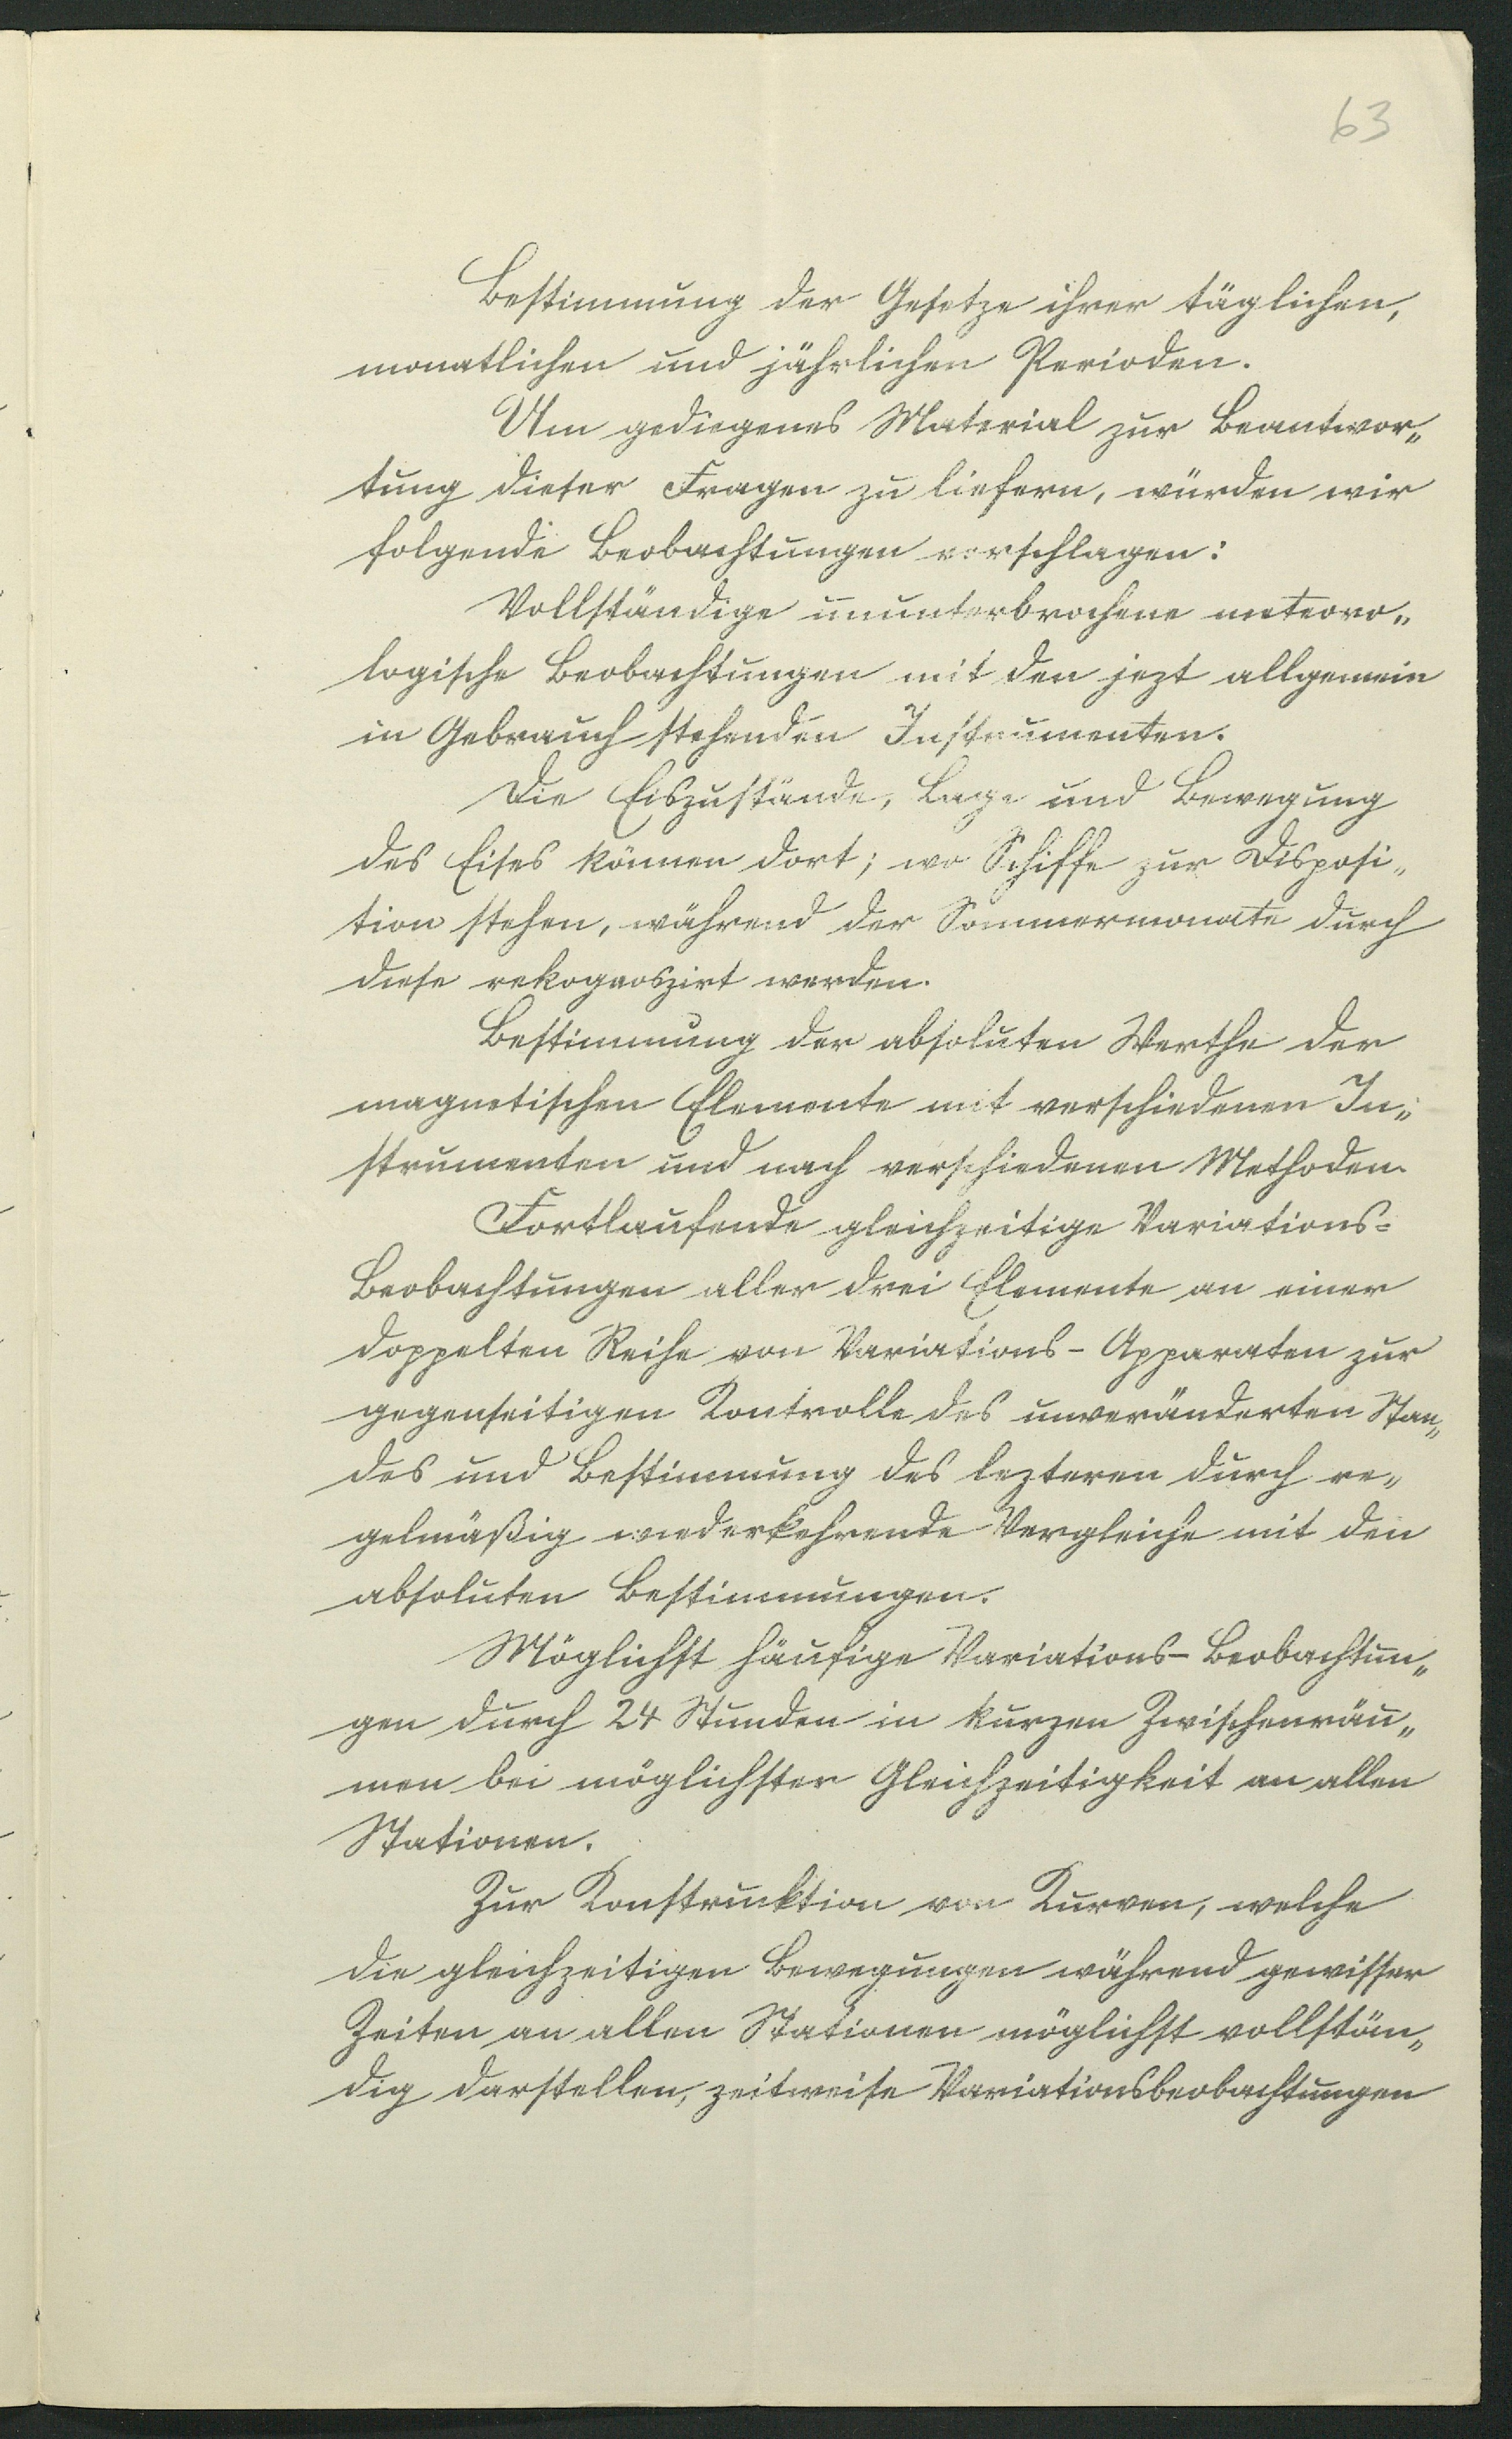 63
Bestimmung der Gesetze ihrer täglichen,
monatlichen und jährlichen Perioden.
Um gediegenes Material zur Beantwor„
tung dieser Fragen zu liefern, würden wir
folgende Beobachtungen vorschlagen:
Vollständige ununterbrochene meteoro„
logische Beobachtungen mit den jezt allgemein
in Gebrauch stehenden Instrumenten.
Die Eiszustände, Lage und Bewegung
des Eises können dort; wo Schiffe zur Disposi„
tion stehen, während der Sommermonate durch
diese rekognoszirt werden.
Bestimmung der absoluten Werthe der
magnetischen Elemente mit verschiedenen In„
strumenten und nach verschiedenen Methoden.
Fortlaufende gleichzeitige Variations=
Beobachtungen aller drei Elemente an einer
doppelten Reihe von Variations-Apparaten zur
gegenseitigen Kontrolle des unveränderten Stan„
des und Bestimmung des lezteren durch re„
gelmäßig wiederkehrende Vergleiche mit den
absoluten Bestimmungen.
Möglichst häufige Variations-Beobachtun„
gen durch 24 Stunden in kurzen Zwischenräu„
men bei möglichster Gleichzeitigkeit an allen
Stationen.
Zur Konstruktion von Kurven, welche
die gleichzeitigen Bewegungen während gewisser
Zeiten an allen Stationen möglichst vollstän„
dig darstellen, zeitweise Variationsbeobachtungen